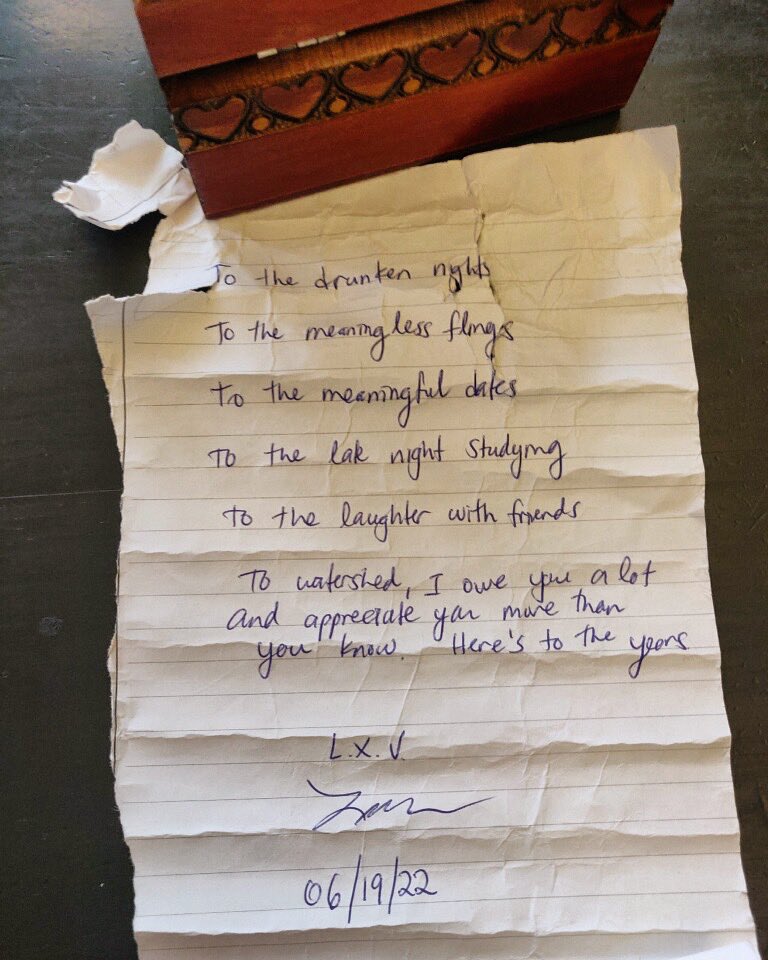 To the drunken nights
To the meaningless flings
To the meaningful dates
To the late night studying
To the laughter with friends
To watershed, I owe you a lot
and appreciate you more than
you know. Here's to the years
L.X.V.
06/19/22